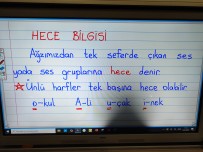 HECE BİLGİSİ
Ağzımızdan tek seferde çıkan ses
yada ses gruplarına hece denir
Ünlü harfler tek başına hece olabilir
o-kul A-li u-çak i-nek